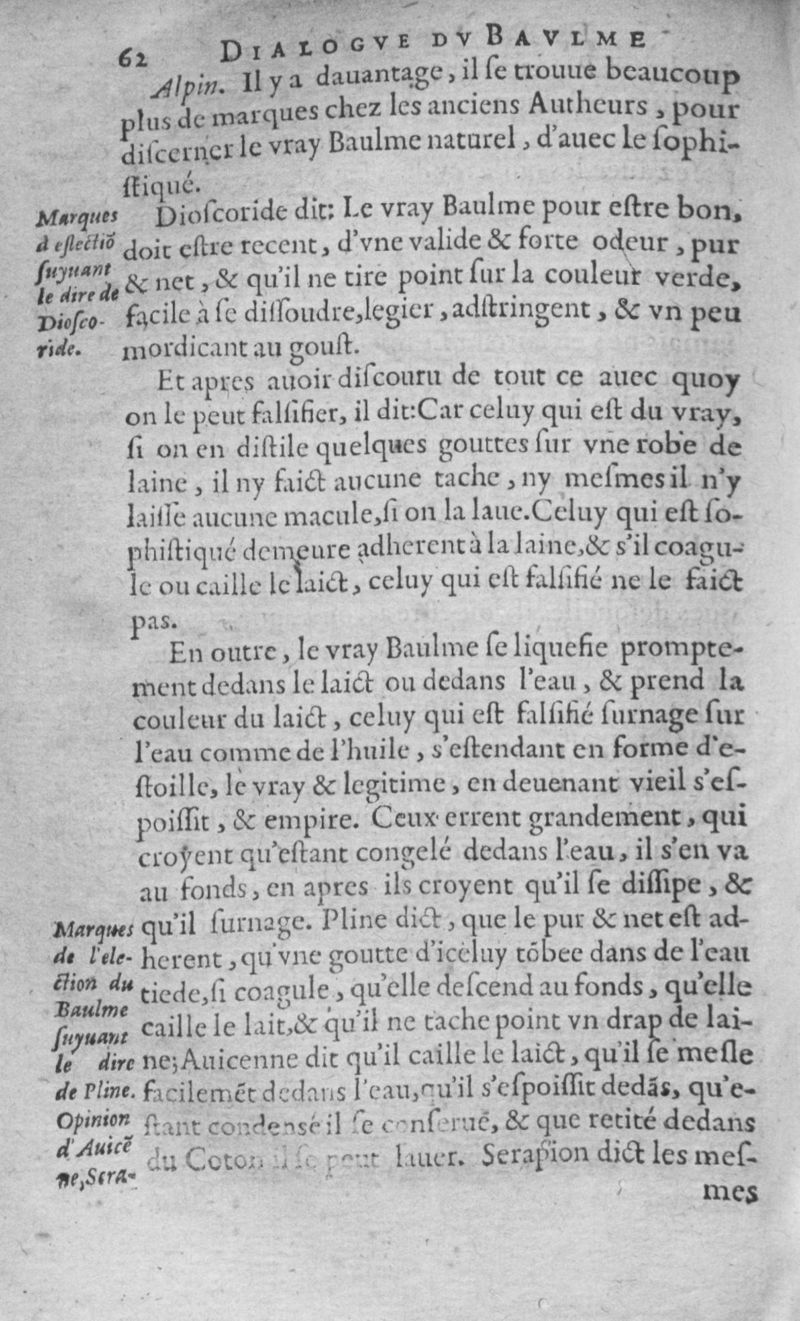 62 DIALOGVE DV BAVLME
Alpin. Il y a dauantage, il ſe trouue beaucoup
plus de marques chez les anciens Autheurs, pour
diſcerner le vray Baulme naturel, d'auec le ſophi-
ſtiqué.
Marques
d'eſlectiõ
ſuyuant
le dire de
Dioſco-
ride.
Dioſcoride dit: Le vray Baulme pour eſtre bon,
doit eſtre recent, d'vne valide & forte odeur, pur
& net, & qu'il ne tire point ſur la couleur verde,
facile à ſe diſſoudre, legier, adſtringent, & vn peu
mordicant au gouſt.
Et apres auoir diſcouru de tout ce auec quoy
on le peut falſifier, il dit: Car celuy qui eſt du vray,
ſi on en diſtile quelques gouttes ſur vne robe de
laine, il ny faict aucune tache, ny meſmes il n'y
laiſſe aucune macule, ſi on la laue. Celuy qui eſt ſo-
phiſtiqué demeure adherent à la laine, & s'il coagu-
le ou caille le laict, celuy qui eſt falſifié ne le faict
pas.
En outre, le vray Baulme ſe liquefie prompte-
ment dedans le laict ou dedans l'eau, & prend la
couleur du laict, celuy qui eſt falſifié ſurnage ſur
l'eau comme de l'huile, s'eſtendant en forme d'e-
ſtoille, le vray & legitime, en deuenant vieil s'eſ-
poiſſit, & empire. Ceux errent grandement, qui
croyent qu'eſtant congelé dedans l'eau, il s'en va
au fonds, en apres ils croyent qu'il ſe diſſipe, &
qu'il ſurnage. Pline dict, que le pur & net eſt ad-
herent, qu'vne goutte d'iceluy tõbee dans de l'eau
tiede, ſi coagule, qu'elle deſcend au fonds, qu'elle
caille le lait, & qu'il ne tache point vn drap de lai-
ne; Auicenne dit qu'il caille le laict, qu'il ſe meſle
facilemẽt dedans l'eau, qu'il s'eſpoiſſit dedãs, qu'e-
ſtant condensé il ſe conſerue, & que retité dedans
du Coton il ſe peut lauer. Serapion dict les meſ-
Marques
de l'ele-
ction du
Baulme
ſuyuant
le dire
de Pline.
Opinion
d'Auicẽ
ne, Sera-
mes